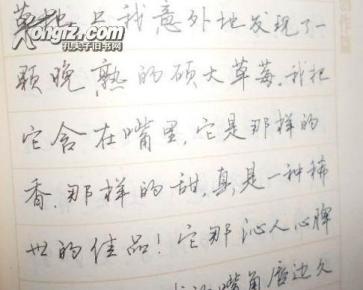 草地上我意外地发现了一
颗晚熟的硕大草莓.我把
它含在嘴里,它是那样的
香.那样的甜,真是一种稀
世的佳品!它那沁人心脾
嘴角唇边久